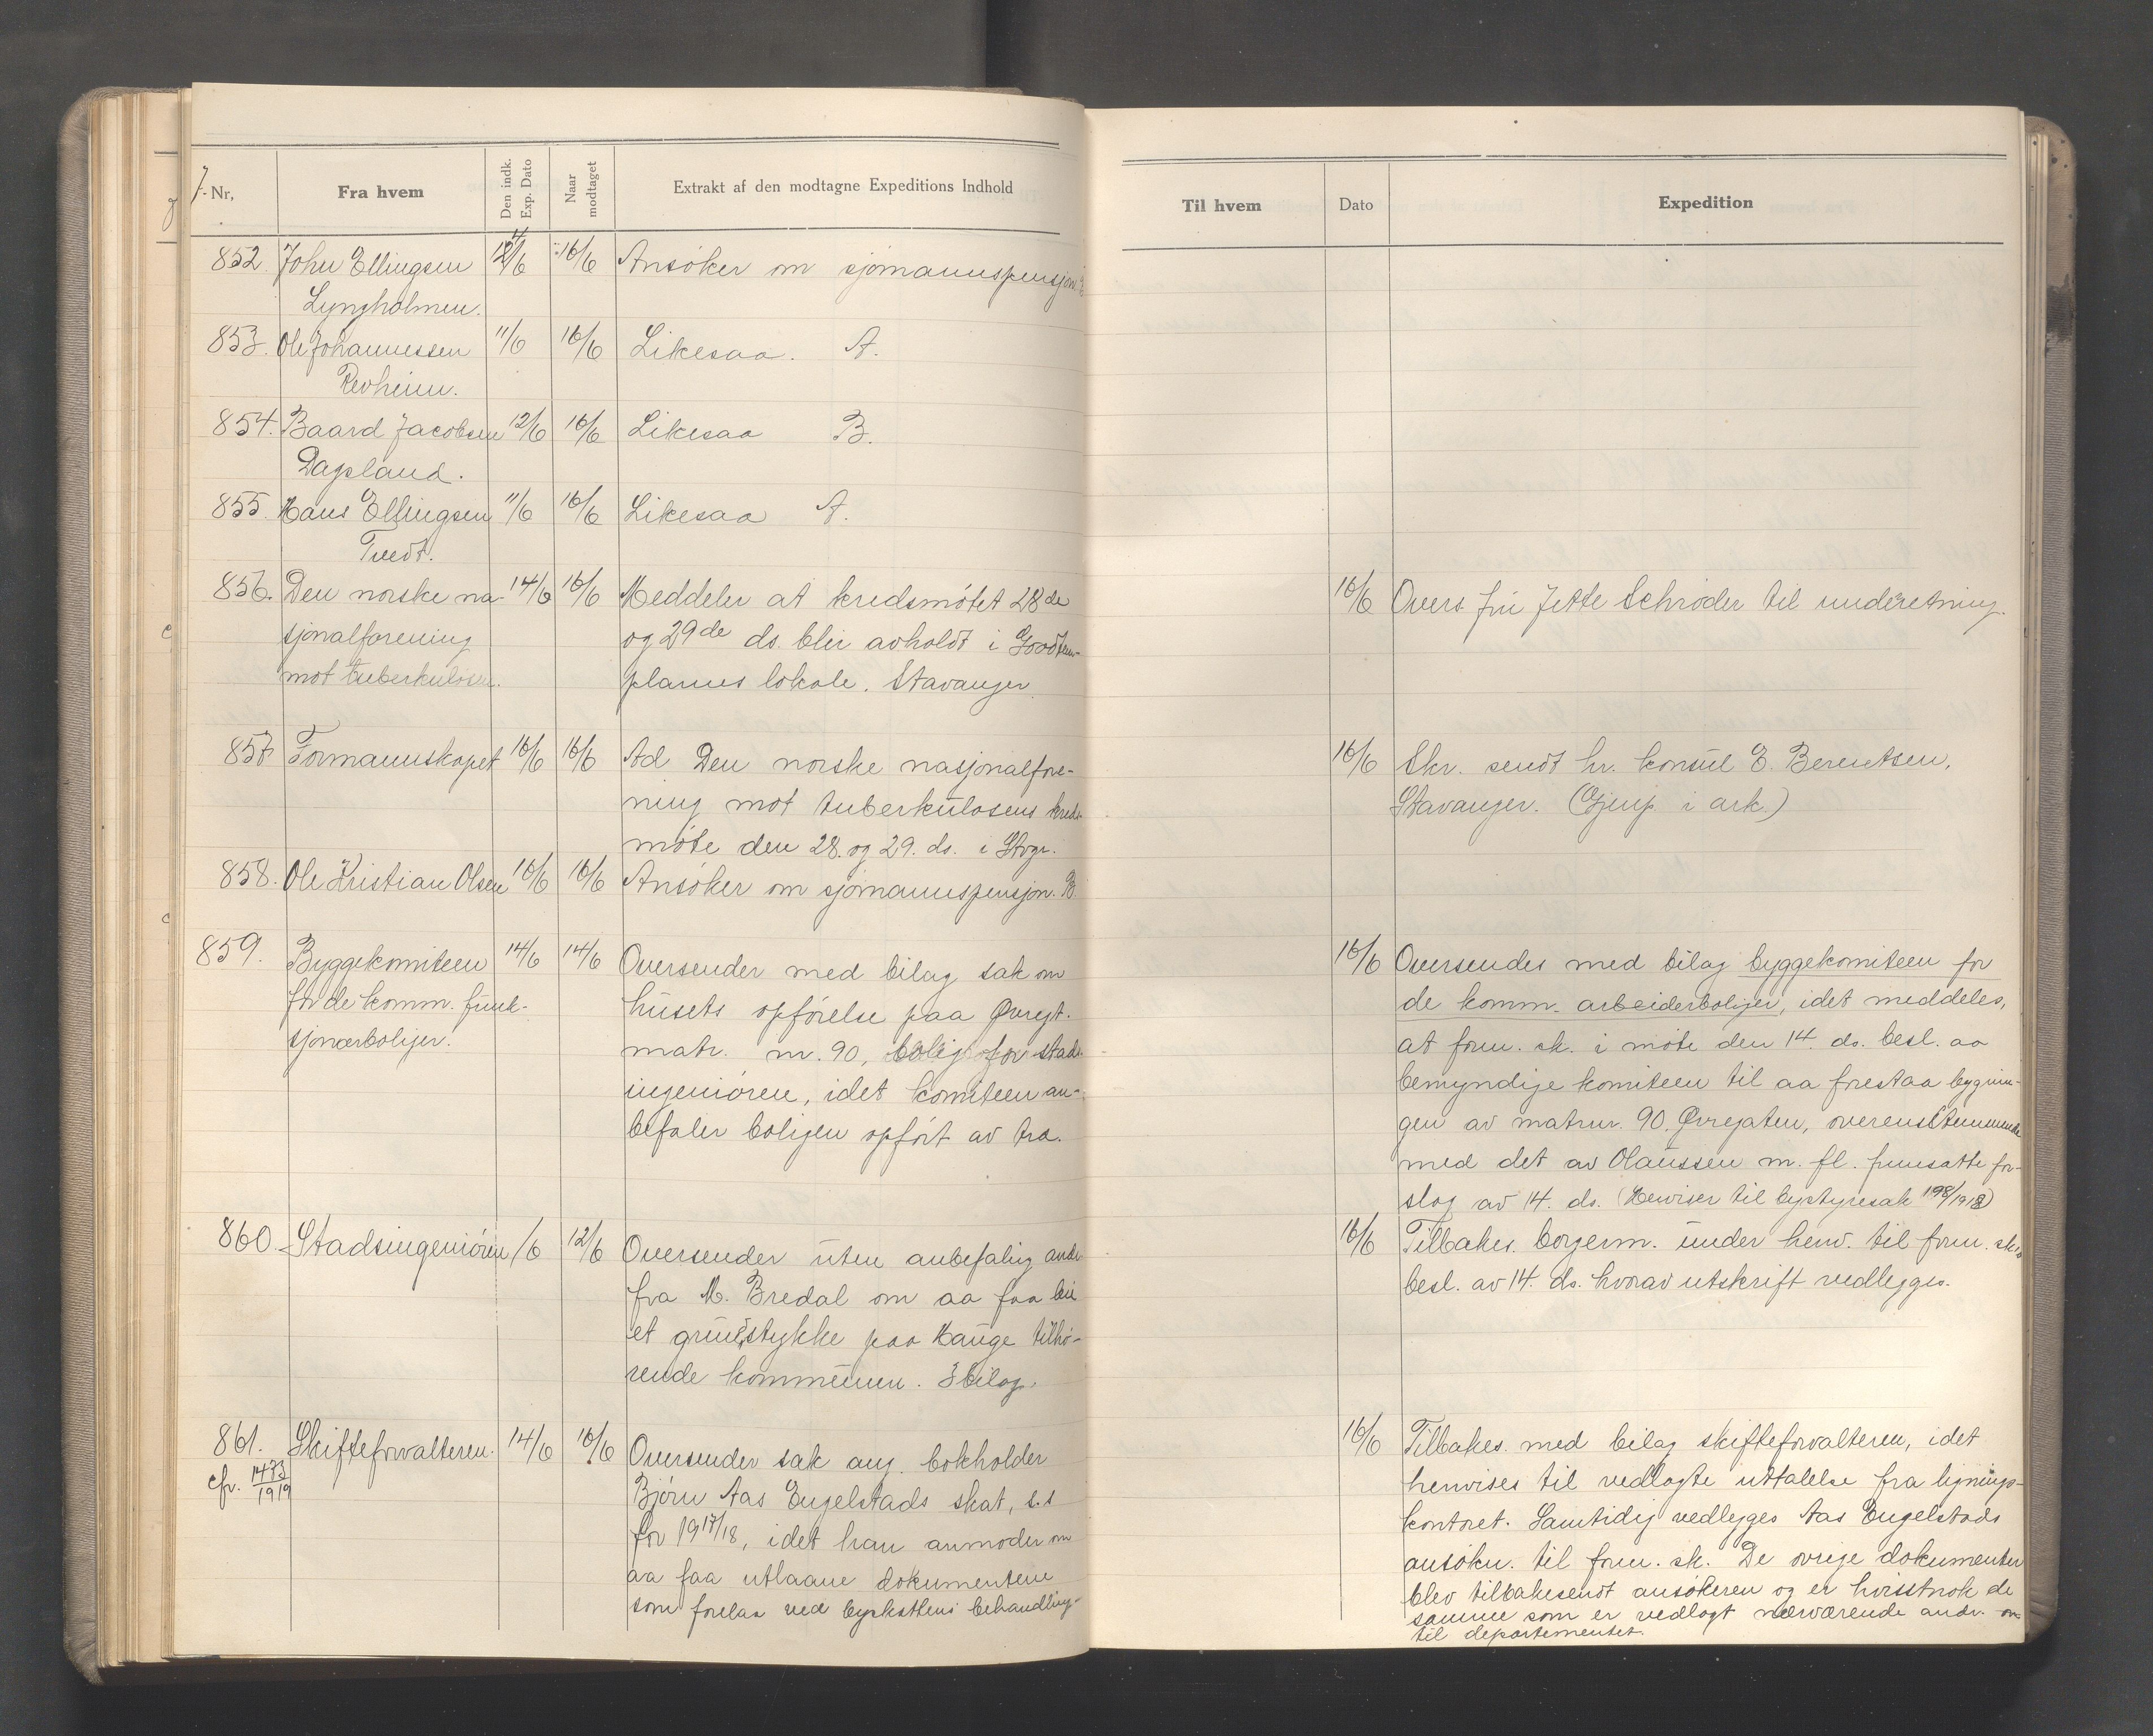 J.-Nr, Fra hvem Den indk. Exp. Dato Naar modtaget Extrakt af den modtagne Expeditions Indhold
852. John Ellingsen 16/6 Ansöker om sjömannspensjon
Lyngholmen.
853. Ole Johannessen 11/6 16/6 Likesaa. A.
Revheim.
854. Baard Jacobsen 12/6 16/6 Likesaa B.
Dagsland.
855. Hans Ellingsen 11/6 16/6 Likesaa A.
Tvedt.
856. Den norske na- 14/6 16/6 Meddeler at kredsmötet 28de
sjonalforening og 29de ds. blir avholdt i Goodtem-
mot tuberkulosen. plarnes lokale. Stavanger.
857 Formannskapet 16/6 16/6 Ad Den norske nasjonalfore-
ning mot tuberkulosens kreds-
möte den 28. og 29. ds. i Stvgr.
858. Ole Kristian Olsen 16/6 16/6 Ansöker om sjömannspensjon. B
859. Byggekomiteen 14/6 14/6 Oversender med bilag sak om
for de komm. funk- husets opförelse paa Øvregt.
sjonærboliger. matr. nr. 90, bolig for stads-
ingeniören, idet komiteen an-
befaler boligen opfört av træ.
860. Stadsingeniören /6 12/6 Oversender uten anbefaling andr.
fra M. Bredal om aa faa leie
et grundstykke paa Hauge tilhö-
rende kommunen. 3 bilag.
861. Skifteforvalteren. 14/6 16/6 Oversender sak ang. bokholder
cfr. 1473/1919 Björn Aas Engelstads skat, s.s
for 1917/18, idet han anmoder om
aa faa utlaane dokumentene
som forelaa ved behandling-
Til hvem Dato Expedition
16/6 Overs. fru Jette Schröder til underetning.
16/6 Skr. sendt hr. konsul E. Berentsen,
Stavanger. (Gjenp. i ark.)
16/6 Oversendes med bilag byggekomiteen for
de komm. arbeiderboliger, idet meddeles,
at form. sk. i möte den 14. ds. besl. aa
bemyndige komiteen til aa forestaa bygnin-
gen av matrnr. 90, Øvregaten, overensstemmende
med det av Olaussen m. fl. fremsatte for-
slag av 14. ds. (Henviser til bystyresak 198/1918)
16/6 Tilbakes. borgerm. under henv. til form. sk.s
besl. av 14. ds. hvorav utskrift vedlegges.
16/6 Tilbakes. med bilag skifteforvalteren, idet
henvises til vedlagte uttalelse fra lignings-
kontoret. Samtidig vedlegges Aas Engelstads
ansökn. til form. sk. De övrige dokumenter
blev tilbakesendt ansökeren og er hvisstnok de
samme som er vedlagt nærværende andr. om
til departementet.